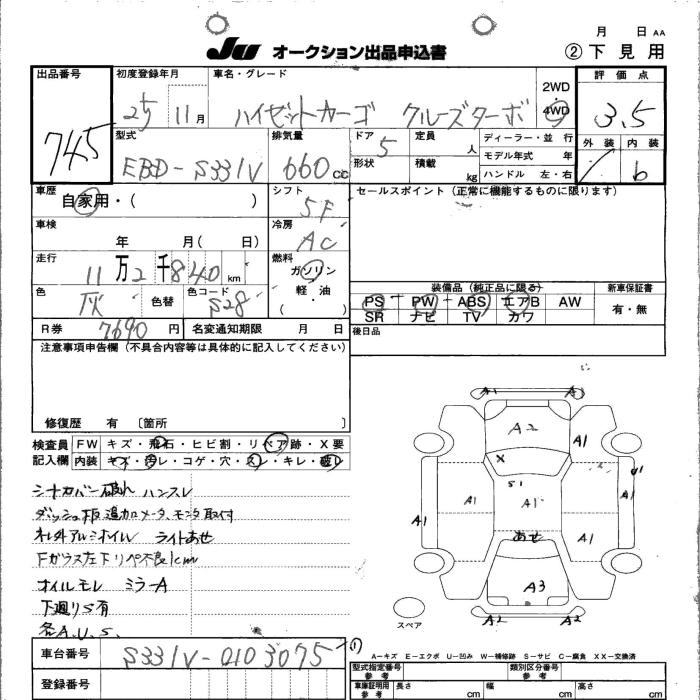 月 日 AA
JU オークション出品申込書 ②下見用
出品番号 初度登録年月 車名・グレード 2WD 4WD 評価点
745 25 11月 ハイゼットカーゴ クルーズターボ 3.5
型式 排気量 ドア 定員 ディーラー・並 行 外装 内装
EBD-S331V 660cc 5 人 モデル年式 年 b
形状 積載 kg ハンドル 左・右
車歴 シフト セールスポイント(正常に機能するものに限ります)
自家用・( ) 5F
車検 冷房
年 月( 日) AC
走行 燃料
11万2千840km ガソリン
色 色替 色コード 軽・油
灰 S28 ( )
装備品(純正品に限る) 新車保証書
PS PW ABS エアB AW 有・無
SR ナビ TV カワ
R券 7690円 名変通知期限 月 日 後日品
注意事項申告欄(不具合内容等は具体的に記入してください)
修復歴 有 〔箇所 〕
検査員 FW キズ・飛石・ヒビ割・リペア跡・X要
記入欄 内装 キズ・汚レ・コゲ・穴・スレ・キレ・破レ
シートカバー破れ ハンスレ
ダッシュ板追加メータ、モニタ取付
社外アルミホイル ライトあせ
Fガラス左下リペ不良1cm
オイルモレ ミラーA
下廻りS有
各A.U.S.
A1 A1
A2
A1
X
S1
A1 A1 A1 A1 A1 U1
あせ
A3
スペア A2 A2
車台番号 S331V-0103075 (1)
登録番号
A-キズ E-エクボ U-凹み W-補修跡 S-サビ C-腐食 XX-交換済
型式指定番号 参考 類別区分番号 参考
車庫証明用 参考 長さ cm 幅 cm 高さ cm